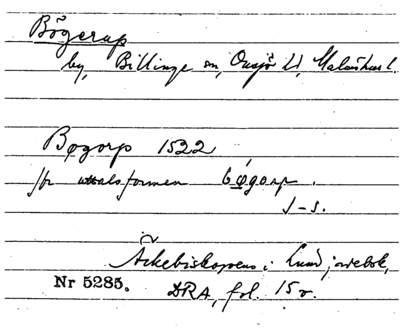 Bögerup
by, Billinge sn, Onsjö hd, Malmöhus l.
Bøgorp 1522
jfr uttalsformen bøgorp.
J-S.
Ärkebiskopens i Lund jordebok,
Nr 5285. DRA, fol. 15 v.